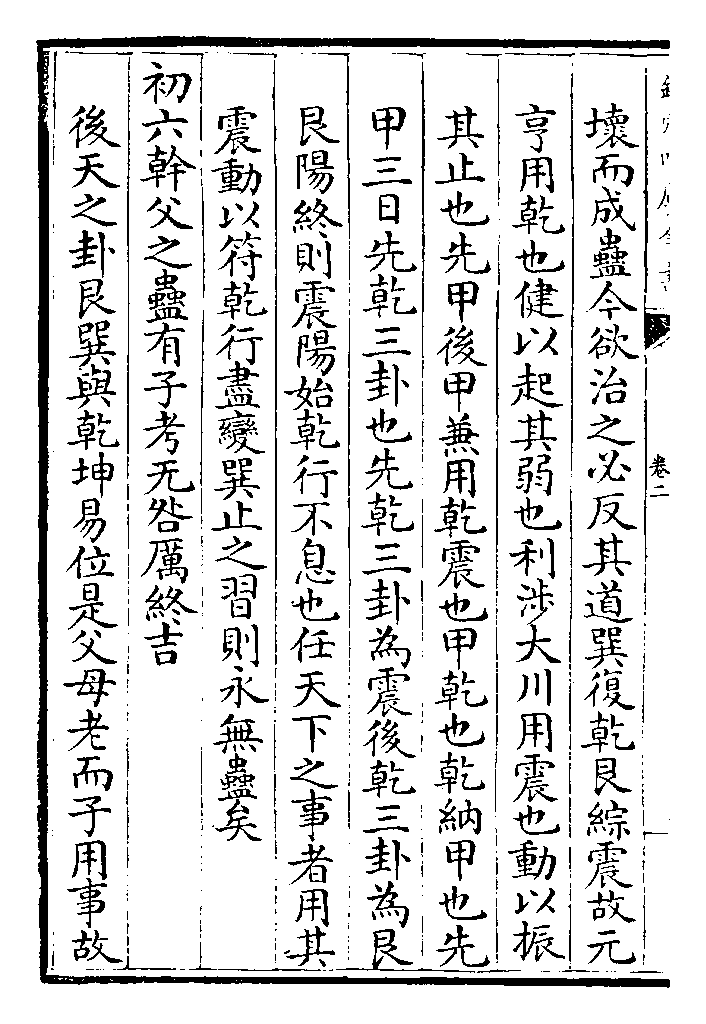 卷二
壞而成蠱今欲治之必反其道巽復乾艮綜震故元
亨用乾也健以起其弱也利涉大川用震也動以振
其止也先甲後甲兼用乾震也甲乾也乾納甲也先
甲三日先乾三卦也先乾三卦為震後乾三卦為艮
艮陽終則震陽始乾行不息也任天下之事者用其
震動以符乾行盡變巽止之習則永無蠱矣
初六幹父之蠱有子考无咎厲終吉
後天之卦艮巽與乾坤易位是父母老而子用事故